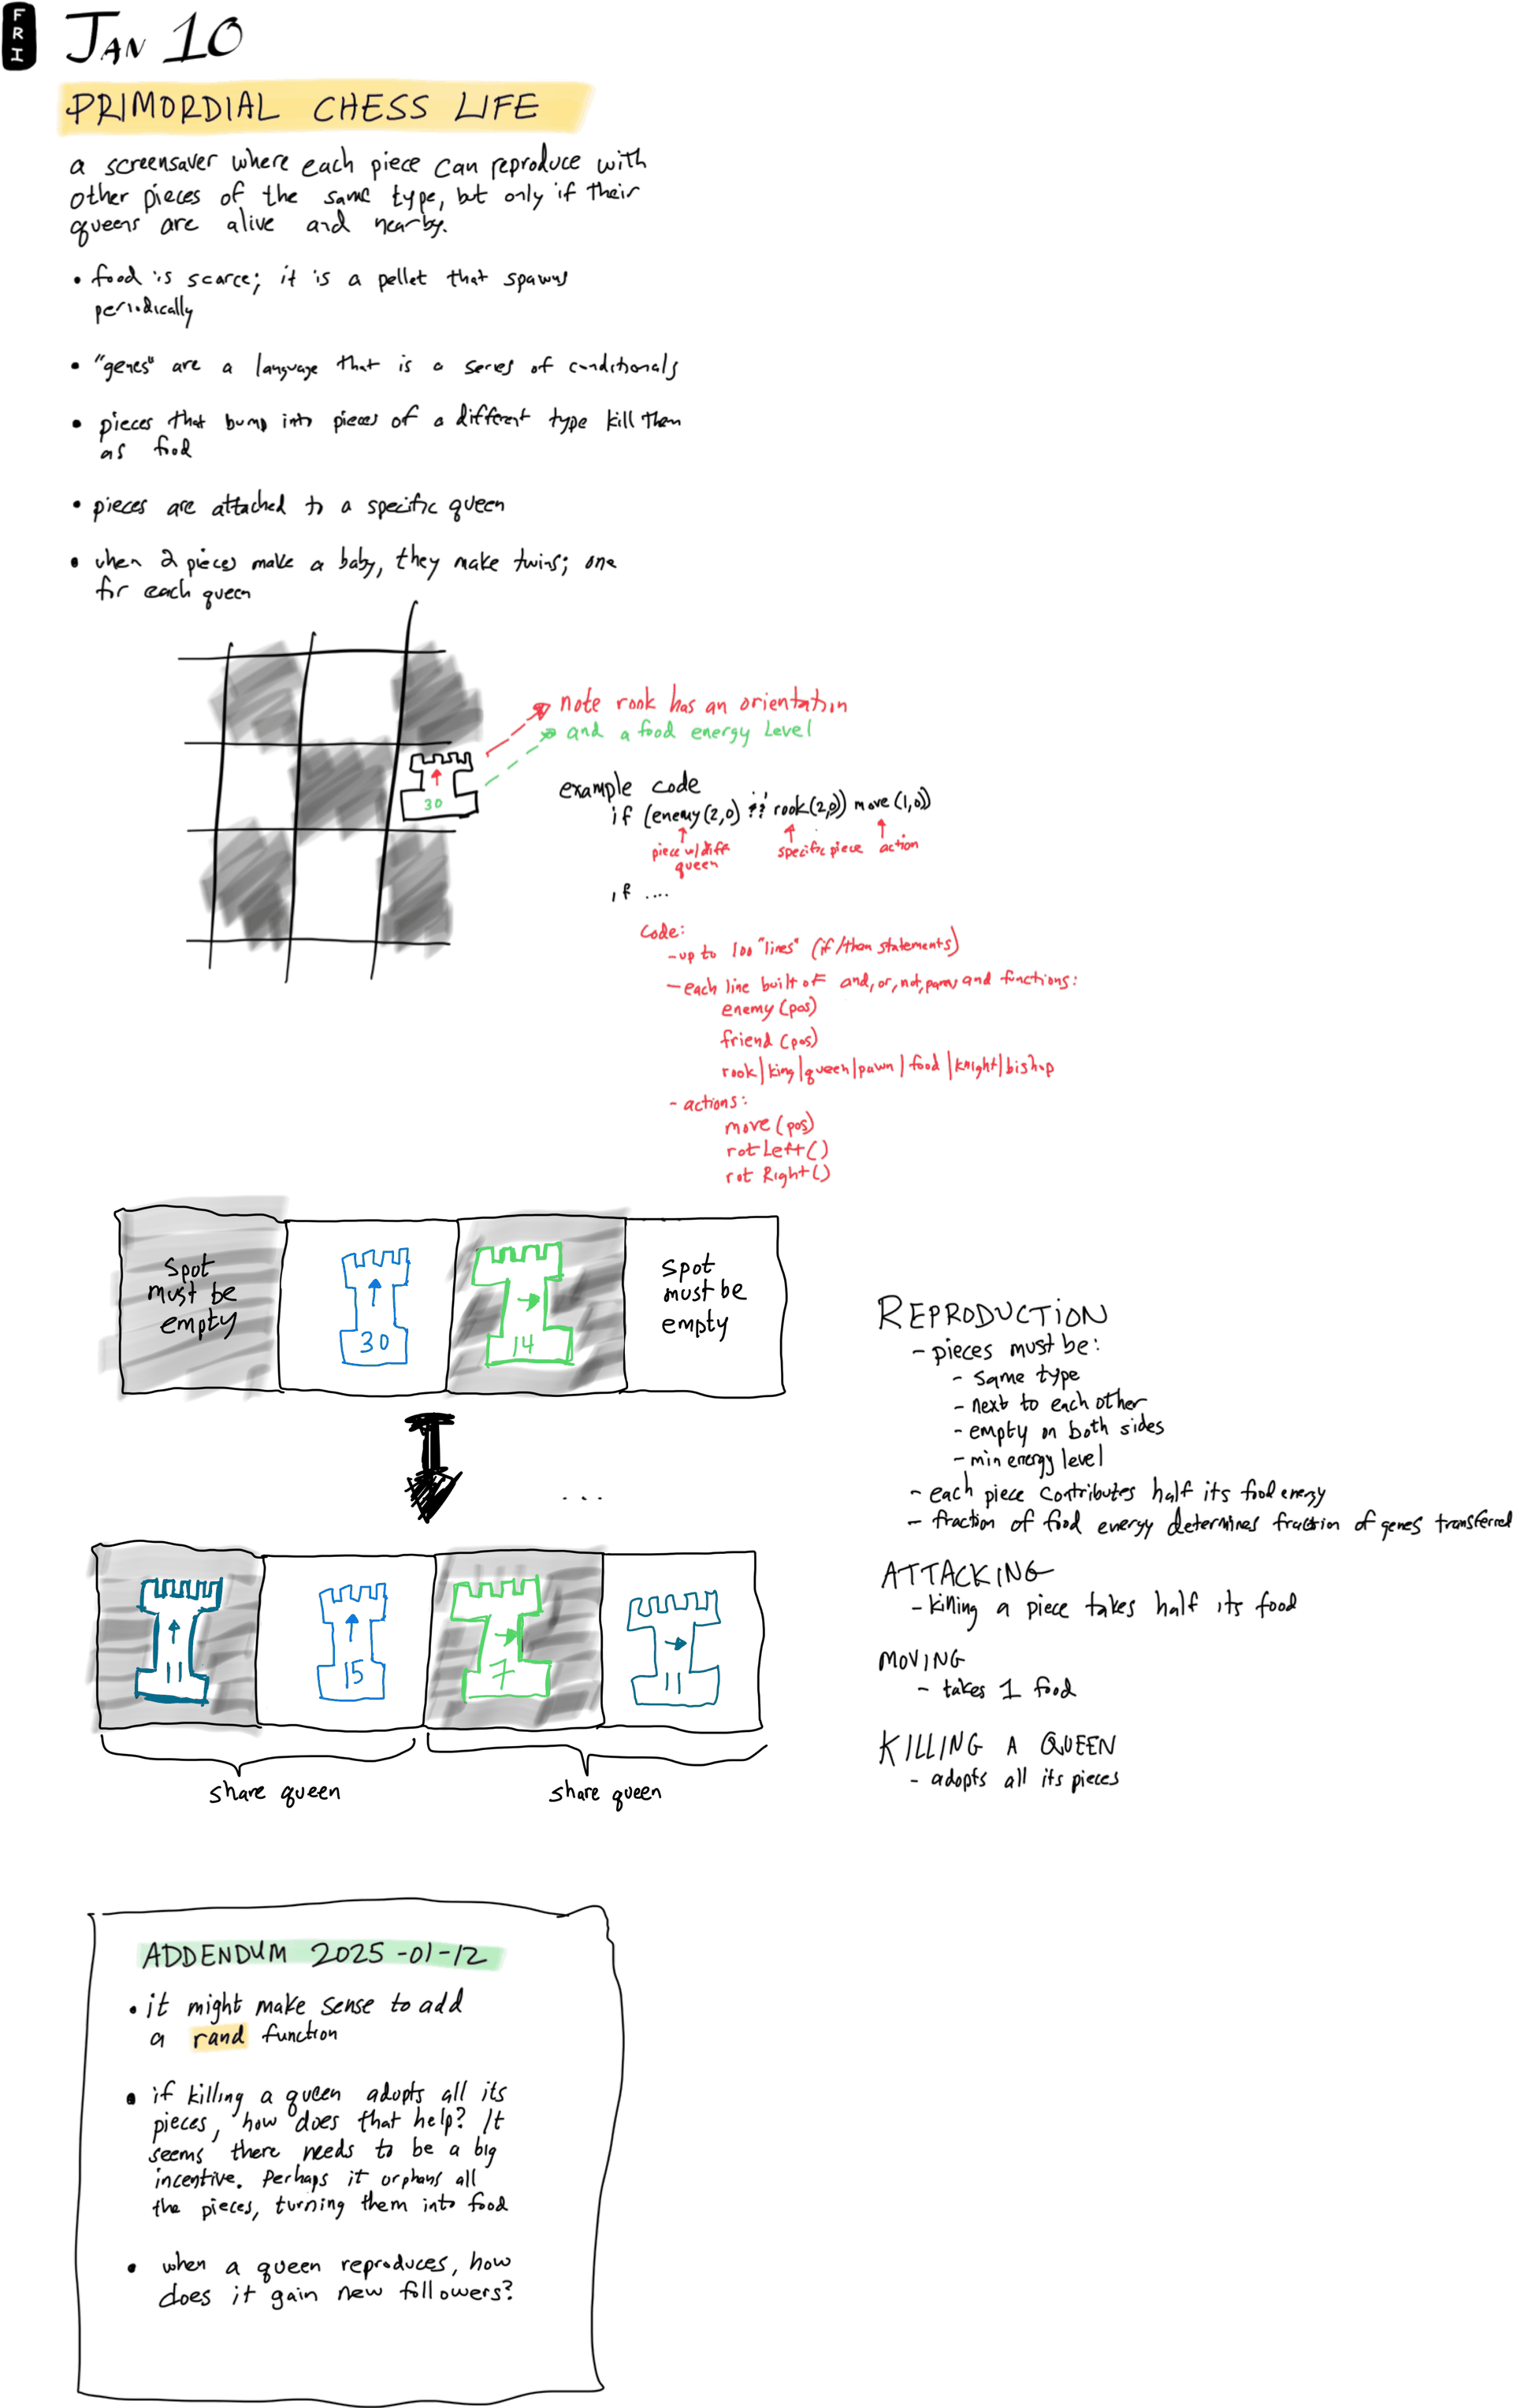 FRI
JAN 10
PRIMORDIAL CHESS LIFE
a screensaver where each piece can reproduce with
other pieces of the same type, but only if their
queens are alive and nearby.
• food is scarce; it is a pellet that spawns
periodically
• "genes" are a language that is a series of conditionals
• pieces that bump into pieces of a different type kill them
as food
• pieces are attached to a specific queen
• when 2 pieces make a baby, they make twins; one
for each queen
note rook has an orientation
and a food energy level
30
example code
if (enemy(2,0) && rook(2,0)) move(1,0))
piece w/diff
queen
specific piece
action
if ....
Code:
- up to 100 "lines" (if/then statements)
- each line built of and, or, not, paren and functions:
enemy (pos)
friend (pos)
rook|king|queen|pawn|food|knight|bishop
- actions:
move (pos)
rotLeft()
rotRight()
Spot
must be
empty
30
14
spot
must be
empty
...
11
15
7
11
share queen
share queen
REPRODUCTION
- pieces must be:
- same type
- next to each other
- empty on both sides
- min energy level
- each piece contributes half its food energy
- fraction of food energy determines fraction of genes transferred
ATTACKING
- killing a piece takes half its food
MOVING
- takes 1 food
KILLING A QUEEN
- adopts all its pieces
ADDENDUM 2025-01-12
• it might make sense to add
a rand function
• if killing a queen adopts all its
pieces, how does that help? It
seems there needs to be a big
incentive. Perhaps it orphans all
the pieces, turning them into food
• when a queen reproduces, how
does it gain new followers?